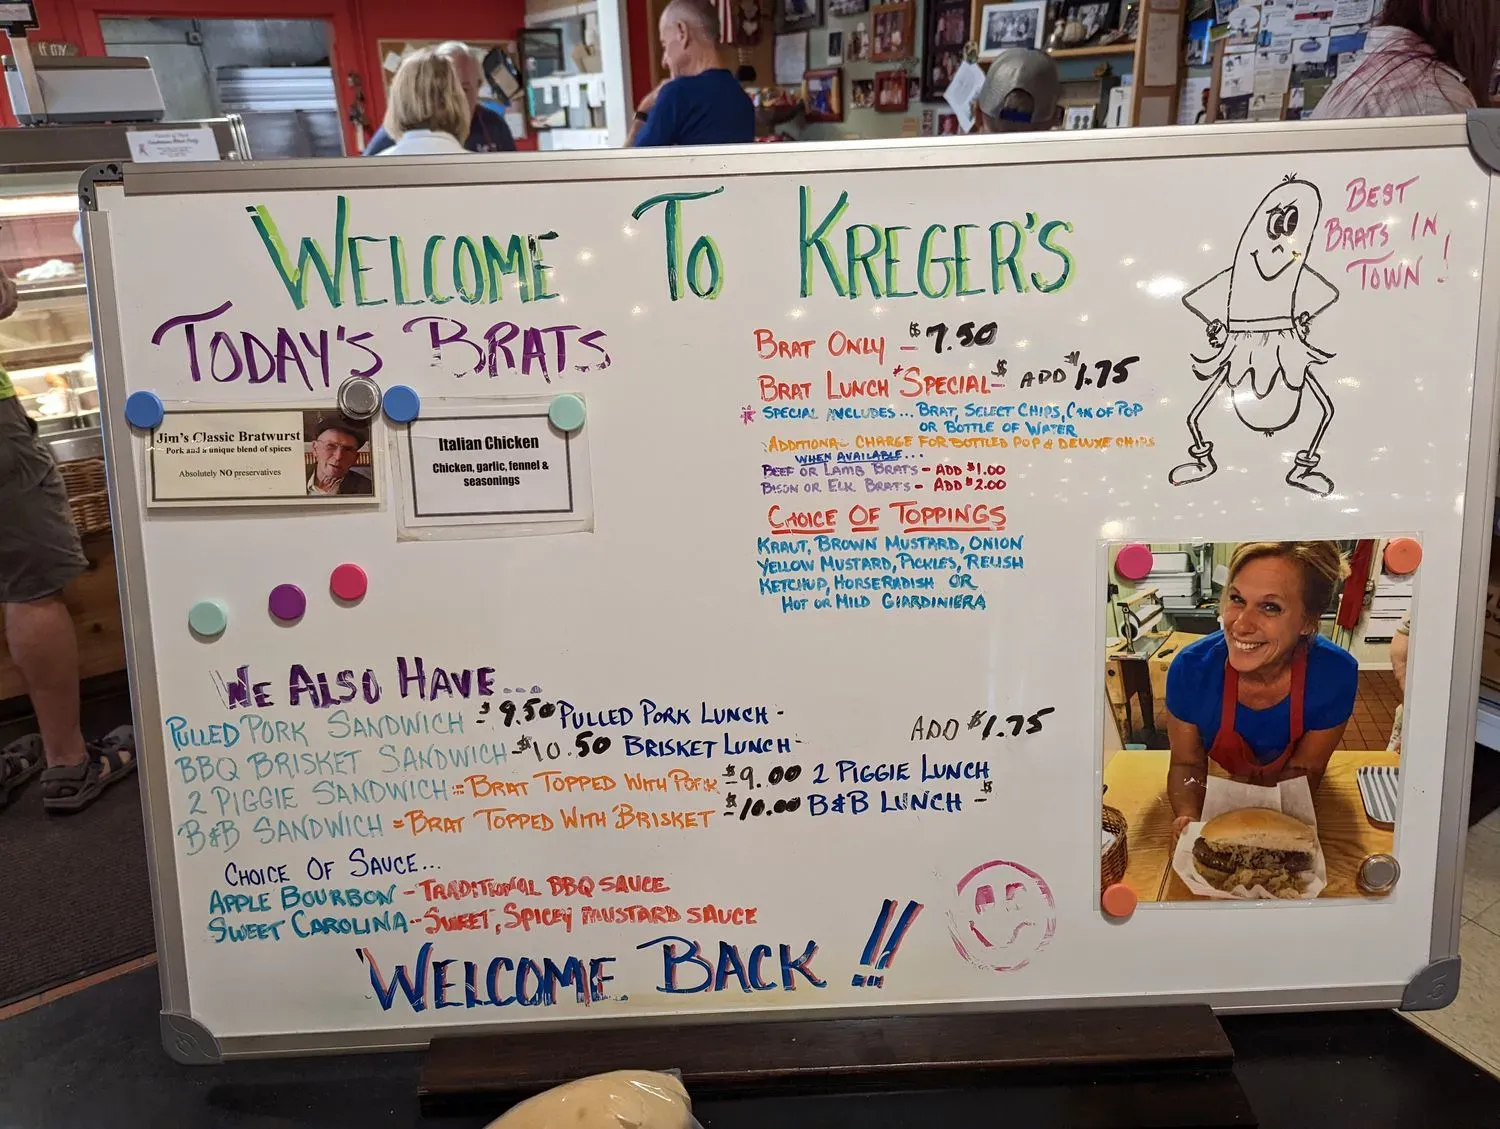 WELCOME TO KREGER'S
BEST
BRATS IN
TOWN!
TODAY'S BRATS
Jim's Classic Bratwurst
Pork and a unique blend of spices
Absolutely NO preservatives
Italian Chicken
Chicken, garlic, fennel &
seasonings
BRAT ONLY - $7.50
BRAT LUNCH *SPECIAL - $ ADD $1.75
* SPECIAL INCLUDES... BRAT, SELECT CHIPS, CAN OF POP
OR BOTTLE OF WATER
ADDITIONAL CHARGE FOR BOTTLED POP & DELUXE CHIPS
WHEN AVAILABLE...
BEEF OR LAMB BRATS - ADD $1.00
BISON OR ELK BRATS - ADD $2.00
CHOICE OF TOPPINGS
KRAUT, BROWN MUSTARD, ONION
YELLOW MUSTARD, PICKLES, RELISH
KETCHUP, HORSERADISH OR
HOT OR MILD GIARDINIERA
WE ALSO HAVE...
PULLED PORK SANDWICH - $9.50 PULLED PORK LUNCH - ADD $1.75
BBQ BRISKET SANDWICH - $10.50 BRISKET LUNCH -
2 PIGGIE SANDWICH = BRAT TOPPED WITH PORK - $9.00 2 PIGGIE LUNCH
B&B SANDWICH = BRAT TOPPED WITH BRISKET - $10.00 B&B LUNCH - $
CHOICE OF SAUCE...
APPLE BOURBON - TRADITIONAL BBQ SAUCE
SWEET CAROLINA - SWEET, SPICEY MUSTARD SAUCE
WELCOME BACK!!